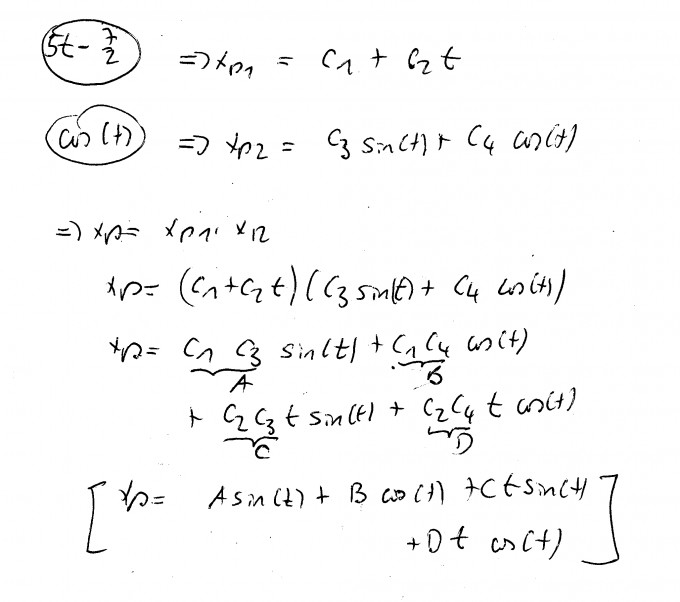 5t - 7/2 => xp1 = C1 + C2 t
cos(t) => xp2 = C3 sin(t) + C4 cos(t)
=> xp = xp1 · xp2
xp = (C1 + C2 t)(C3 sin(t) + C4 cos(t))
xp = C1 C3 sin(t) + C1 C4 cos(t)
A B
+ C2 C3 t sin(t) + C2 C4 t cos(t)
C D
[ xp = A sin(t) + B cos(t) + C t sin(t)
+ D t cos(t) ]